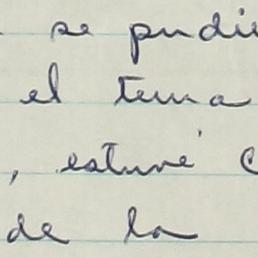 se pudie
el tema
, estuve c
de la